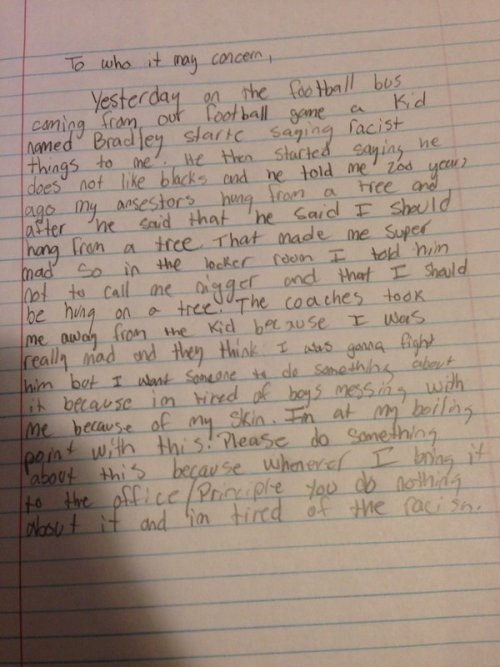 To who it may concern,
Yesterday on the football bus
coming from our football game a kid
named Bradley starte saying racist
things to me. He then started saying he
does not like blacks and he told me 200 years
ago my ansestors hung from a tree and
after he said that he said I should
hang from a tree. That made me super
mad so in the locker room I told him
not to call me nigger and that I should
be hung on a tree. The coaches took
me away from the kid because I was
really mad and they think I was gonna fight
him but I want someone to do something about
it because im tired of boys messing with
me because of my skin. I'm at my boiling
point with this. Please do something
about this because whenever I bring it
to the office/Principle you do nothing
about it and im tired of the racism.